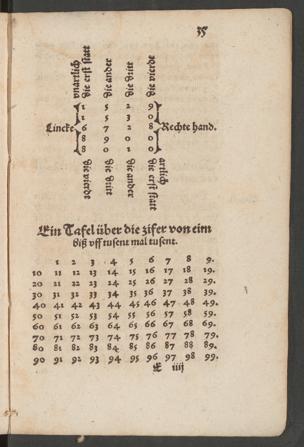 35
vnartlich
die erst statt
die ander
die dritt
die vierde
1 5 2 9
1 5 3 0
Lincke 6 7 2 8 Rechte hand.
8 9 0 0
8 0 1 8
die vierde
die dritt
die ander
die erst statt
artlich
Ein Tafel über die zifer von eim
biß vff tusent mal tusent.
1 2 3 4 5 6 7 8 9.
10 11 12 13 14 15 16 17 18 19.
20 21 22 23 24 25 26 27 28 29.
30 31 32 33 34 35 36 37 38 39.
40 41 42 43 44 45 46 47 48 49.
50 51 52 53 54 55 56 57 58 59.
60 61 62 63 64 65 66 67 68 69.
70 71 72 73 74 75 76 77 78 79.
80 81 82 83 84 85 86 87 88 89.
90 91 92 93 94 95 96 97 98 99.
E iiij